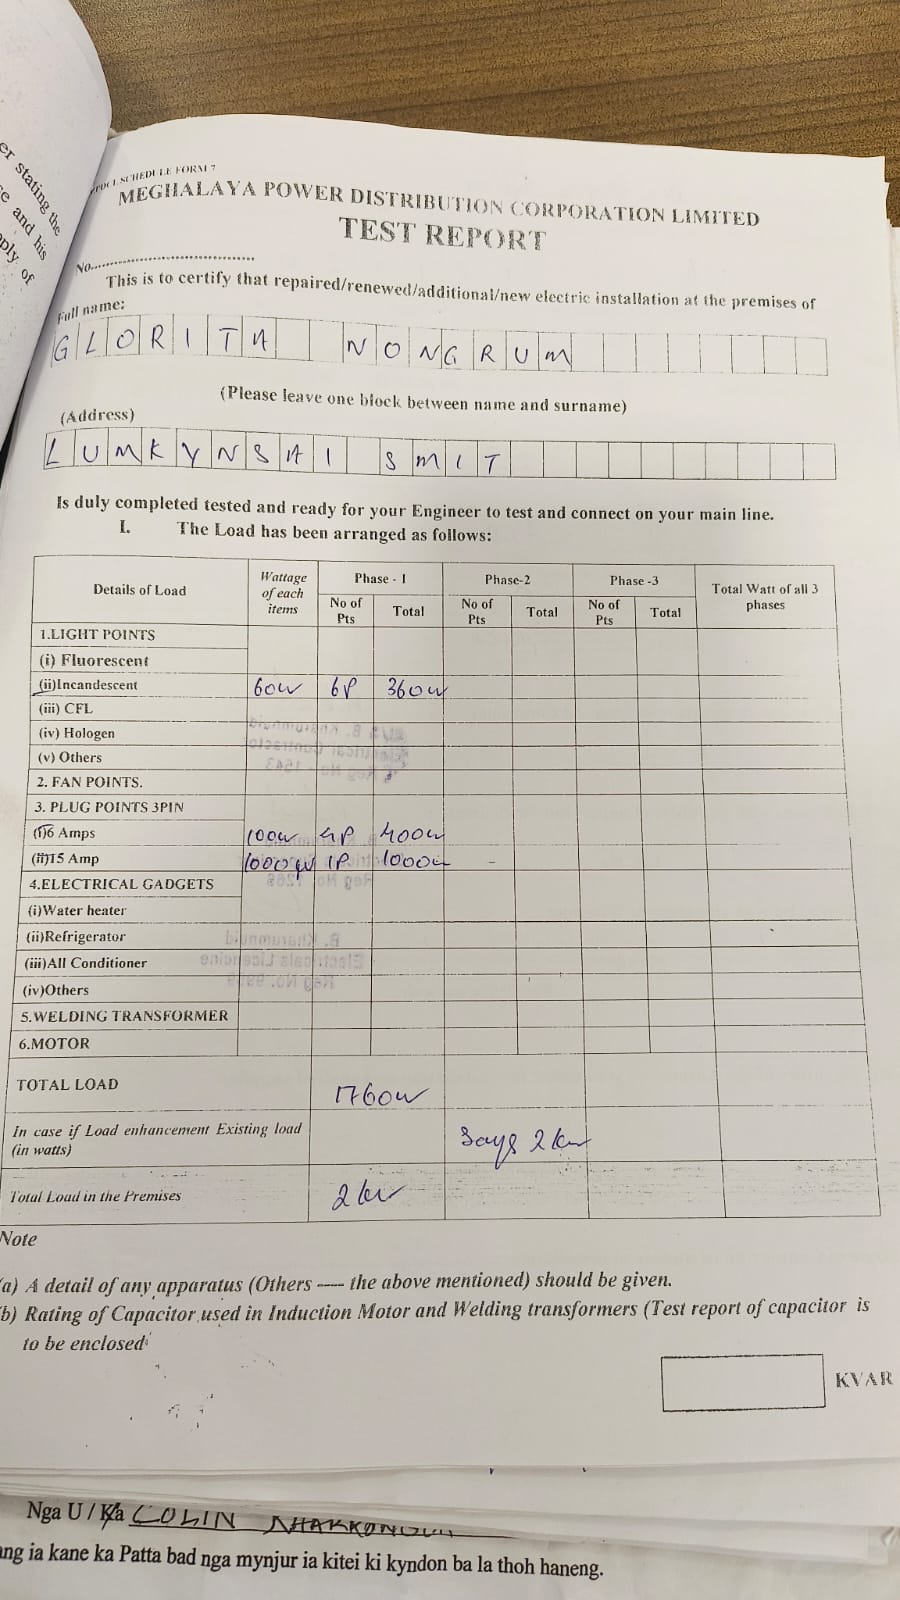 er stating the
e and his
pply of
SCHEDULE FORM 7
MEGHALAYA POWER DISTRIBUTION CORPORATION LIMITED
TEST REPORT
No.......................................
This is to certify that repaired/renewed/additional/new electric installation at the premises of
Full name:
GLORITA NONGRUM
(Please leave one block between name and surname)
(Address)
LUMKYNSAI SMIT
Is duly completed tested and ready for your Engineer to test and connect on your main line.
I. The Load has been arranged as follows:
Details of Load Wattage of each items Phase - 1 Phase-2 Phase -3 Total Watt of all 3 phases
No of Pts Total No of Pts Total No of Pts Total
1.LIGHT POINTS
(i) Fluorescent
(ii)Incandescent 60w 6P 360w
(iii) CFL
(iv) Hologen
(v) Others
2. FAN POINTS.
3. PLUG POINTS 3PIN
(i)6 Amps 100w 4P 400w
(ii)15 Amp 1000w 1P 1000w -
4.ELECTRICAL GADGETS
(i)Water heater
(ii)Refrigerator
(iii)All Conditioner
(iv)Others
5.WELDING TRANSFORMER
6.MOTOR
TOTAL LOAD 1760w
In case if Load enhancement Existing load (in watts) Says 2kw
Total Load in the Premises 2kw
Note
(a) A detail of any apparatus (Others ---- the above mentioned) should be given.
(b) Rating of Capacitor used in Induction Motor and Welding transformers (Test report of capacitor is
to be enclosed
KVAR
Nga U / Ka COLIN
ang ia kane ka Patta bad nga mynjur ia kitei ki kyndon ba la thoh haneng.